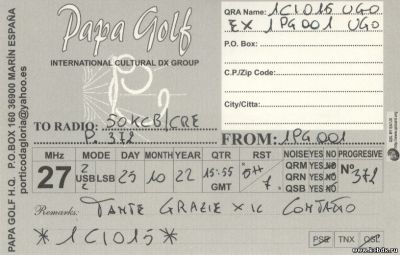 Papa Golf
INTERNATIONAL CULTURAL DX GROUP
QRA Name: 1CI015 UGO
EX 1PG001 UGO
P.O. Box:
C.P./Zip Code:
City/Citta:
TO RADIO: 50KCB/CRE
P. 372
FROM: 1PG001
PAPA GOLF H.Q. P.O.BOX 160 36900 MARÍN ESPAÑA
porticodagloria@yahoo.es
MHz MODE DAY MONTH YEAR QTR RST NOISE YES NO PROGRESIVE
27 USB LSB 25 10 22 15:55 GMT QRM YES NO Nº 372
QRN YES NO
QSB YES NO
Remarks: TANTE GRAZIE X IL CONTATTO
*1CI015*
PSE TNX QSL
www.kcbdx.ru